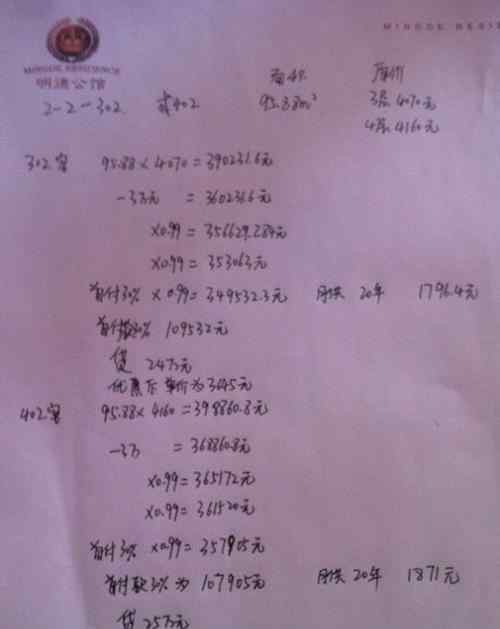 MINGDE RESIDENCE
明德公馆
MINGDE RESI
面积 单价
2-2-302 或402 95.88m² 3层 4070元
4层 4160元
302室 95.88×4070=390231.6元
-3万元 =360231.6元
×0.99=356629.284元
×0.99=353063元
首付30% ×0.99=349532.3元 月供 20年 1796.4元
首付款30% 109532元
贷 24万元
优惠后单价为3645元
402室 95.88×4160=398860.8元
-3万 =368860.8元
×0.99=365172元
×0.99=361520元
首付30% ×0.99=357905元
首付款30%为 107905元 月供 20年 1871元
贷 25万元